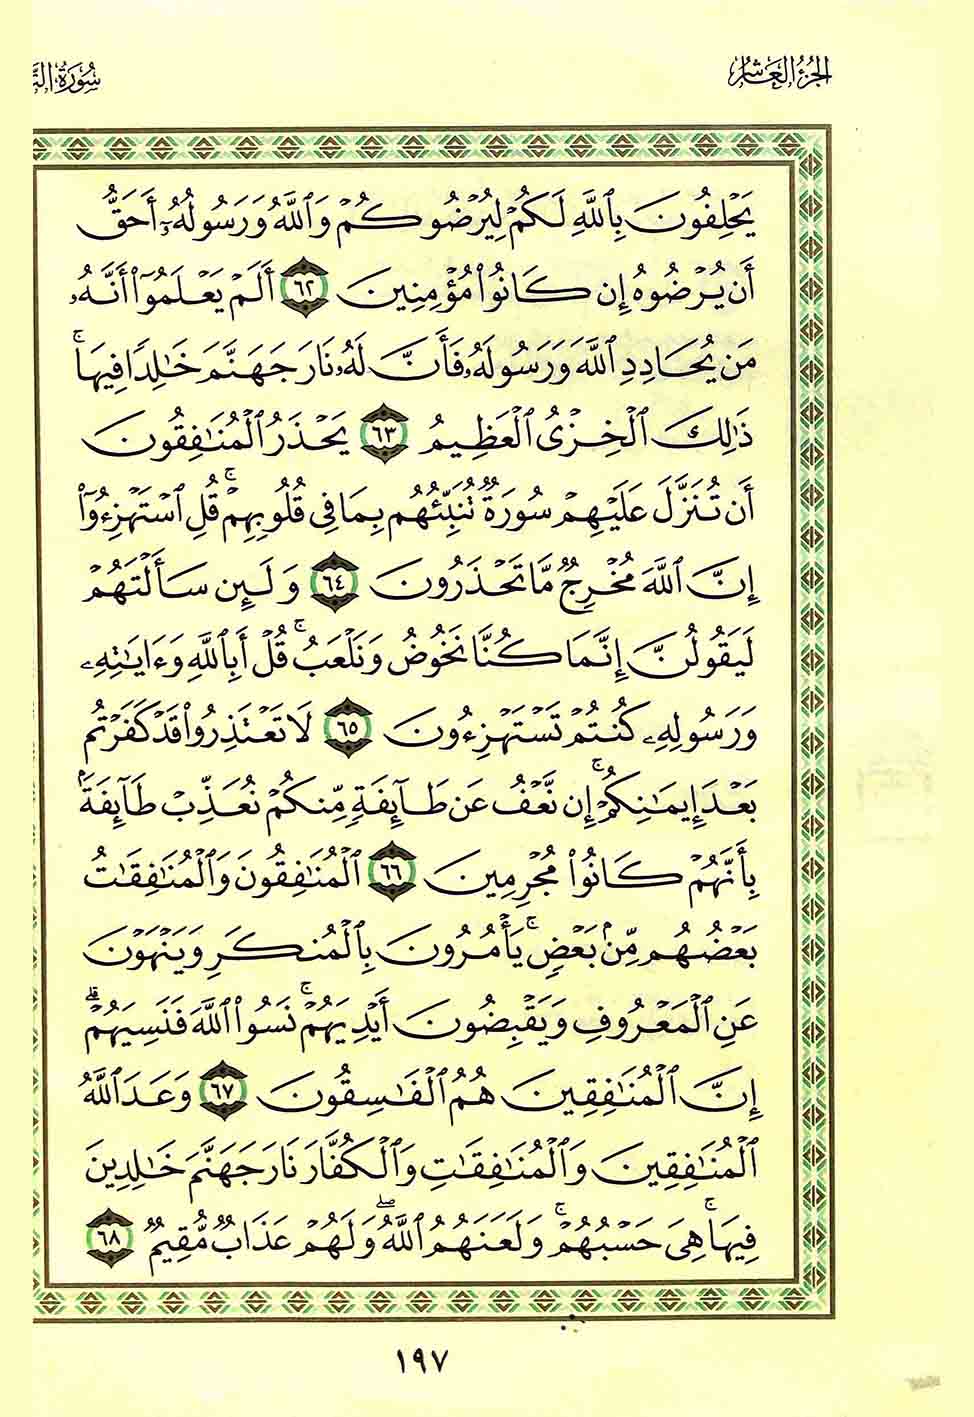 الجزء العاشر
سورة
يَحْلِفُونَ بِٱللَّهِ لَكُمْ لِيُرْضُوكُمْ وَٱللَّهُ وَرَسُولُهُۥٓ أَحَقُّ
أَن يُرْضُوهُ إِن كَانُوا۟ مُؤْمِنِينَ ٦٢ أَلَمْ يَعْلَمُوٓا۟ أَنَّهُۥ
مَن يُحَادِدِ ٱللَّهَ وَرَسُولَهُۥ فَأَنَّ لَهُۥ نَارَ جَهَنَّمَ خَٰلِدًا فِيهَا ۚ
ذَٰلِكَ ٱلْخِزْىُ ٱلْعَظِيمُ ٦٣ يَحْذَرُ ٱلْمُنَٰفِقُونَ
أَن تُنَزَّلَ عَلَيْهِمْ سُورَةٌ تُنَبِّئُهُم بِمَا فِى قُلُوبِهِمْ ۚ قُلِ ٱسْتَهْزِءُوٓا۟
إِنَّ ٱللَّهَ مُخْرِجٌ مَّا تَحْذَرُونَ ٦٤ وَلَئِن سَأَلْتَهُمْ
لَيَقُولُنَّ إِنَّمَا كُنَّا نَخُوضُ وَنَلْعَبُ ۚ قُلْ أَبِٱللَّهِ وَءَايَٰتِهِۦ
وَرَسُولِهِۦ كُنتُمْ تَسْتَهْزِءُونَ ٦٥ لَا تَعْتَذِرُوا۟ قَدْ كَفَرْتُم
بَعْدَ إِيمَٰنِكُمْ ۚ إِن نَّعْفُ عَن طَآئِفَةٍ مِّنكُمْ نُعَذِّبْ طَآئِفَةًۢ
بِأَنَّهُمْ كَانُوا۟ مُجْرِمِينَ ٦٦ ٱلْمُنَٰفِقُونَ وَٱلْمُنَٰفِقَٰتُ
بَعْضُهُم مِّنۢ بَعْضٍ ۚ يَأْمُرُونَ بِٱلْمُنكَرِ وَيَنْهَوْنَ
عَنِ ٱلْمَعْرُوفِ وَيَقْبِضُونَ أَيْدِيَهُمْ ۚ نَسُوا۟ ٱللَّهَ فَنَسِيَهُمْ ۗ
إِنَّ ٱلْمُنَٰفِقِينَ هُمُ ٱلْفَٰسِقُونَ ٦٧ وَعَدَ ٱللَّهُ
ٱلْمُنَٰفِقِينَ وَٱلْمُنَٰفِقَٰتِ وَٱلْكُفَّارَ نَارَ جَهَنَّمَ خَٰلِدِينَ
فِيهَا ۚ هِىَ حَسْبُهُمْ ۚ وَلَعَنَهُمُ ٱللَّهُ ۖ وَلَهُمْ عَذَابٌ مُّقِيمٌ ٦٨
١٩٧